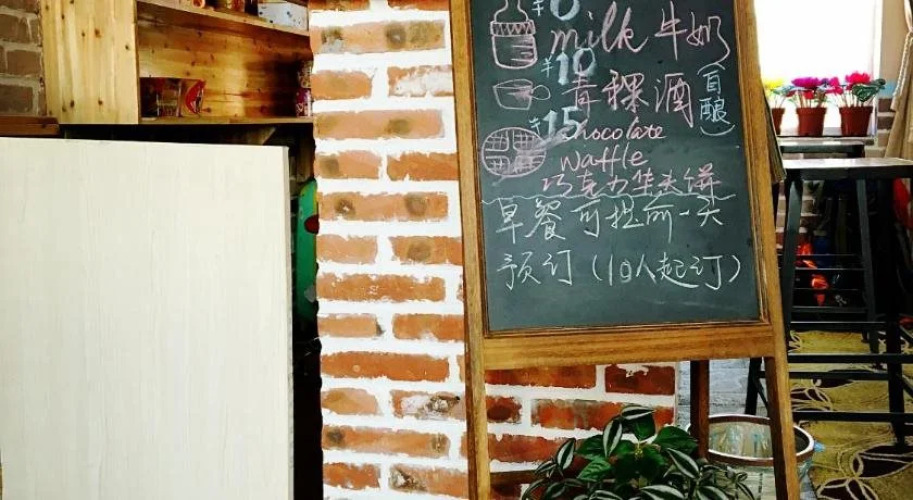 milk 牛奶
¥10
青稞酒（自酿）
¥15
chocolate
waffle
巧克力华夫饼
早餐可提前一天
预订（10人起订）